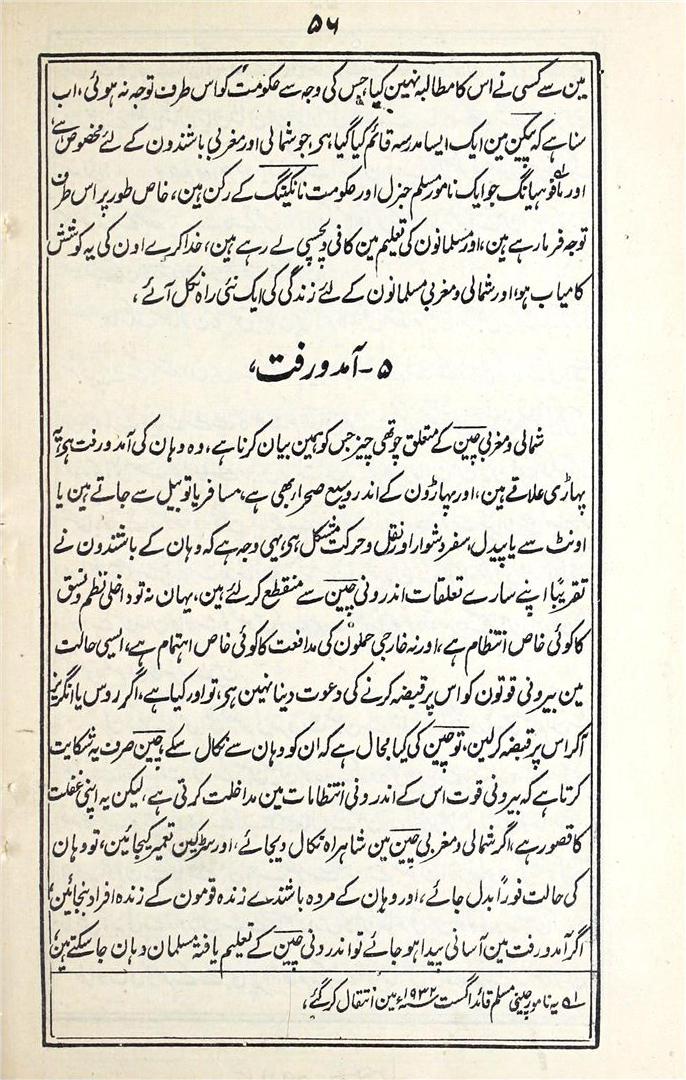 ۵۶
مین سے کسی نے اس کا مطالبہ نہین کیا، جس کی وجہ سے حکومت کو اس طرف توجہ نہ ہوئی، اب
سنا ہے کہ پیکین مین ایک ایسا مدرسہ قائم کیا گیا ہی، جو شمالی اور مغربی باشندون کے لئے مخصوص ہے،
اور مافوہیانگ جو ایک نامور مسلم جنرل اور حکومت نانکینگ کے رکن ہین، خاص طور پر اس طرف
توجہ فرما رہے ہین، اور مسلمانون کی تعلیم مین کافی دلچسپی لے رہے ہین، خدا کرے اون کی یہ کوشش
کامیاب ہو، اور شمالی و مغربی مسلمانون کے لئے زندگی کی ایک نئی راہ نکل آئے،
۵- آمد و رفت،
شمالی و مغربی چین کے متعلق چوتھی چیز جس کو ہمین بیان کرنا ہے، وہ وہان کی آمد و رفت ہی، یہ
پہاڑی علاقے ہین، اور پہاڑون کے اندر وسیع صحرا بھی ہے، مسافر یا تو بیل سے جاتے ہین یا
اونٹ سے یا پیدل، سفر دشوار اور نقل و حرکت مشکل ہی، یہی وجہ ہے کہ وہان کے باشندون نے
تقریباً اپنے سارے تعلقات اندرونی چین سے منقطع کر لئے ہین، یہان نہ تو داخلی نظم و نسق
کا کوئی خاص انتظام ہے، اور نہ خارجی حملون کی مدافعت کا کوئی خاص اہتمام ہے، ایسی حالت
مین بیرونی قوتون کو اس پر قبضہ کرنے کی دعوت دینا نہین ہی، تو اور کیا ہے، اگر روس یا انگریز
آکر اس پر قبضہ کر لین، تو چین کی کیا مجال ہے کہ ان کو وہان سے نکال سکے، چین صرف یہ شکایت
کرتا ہے کہ بیرونی قوت اس کے اندرونی انتظامات مین مداخلت کرتی ہے، لیکن یہ اپنی غفلت
کا قصور ہے، اگر شمالی و مغربی چین مین شاہراہ نکال دیجائے، اور سڑکین تعمیر کیجائین، تو وہان
کی حالت فوراً بدل جائے، اور وہان کے مردہ باشندے زندہ قومون کے زندہ افراد بنجائین،
اگر آمد و رفت مین آسانی پیدا ہو جائے تو اندرونی چین کے تعلیم یافتہ مسلمان وہان جا سکتے ہین،
۱ہ یہ نامور چینی مسلم قائد اگست ۱۹۳۲ء مین انتقال کر گئے،